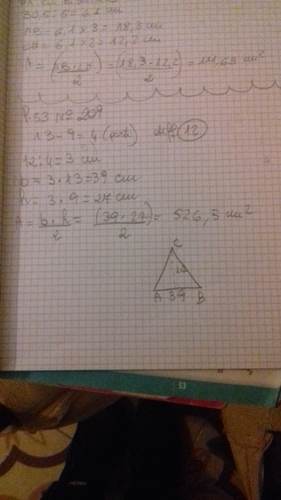 30,5:5=6,1 cm
CB=6,1x3=18,3cm
CD=6,1x2=12,2 cm
A=(18,3·12,2)/2=111,63 cm²
P.53 N° 209
13-9=4 (parti) diff 12
12:4=3 cm
b=3·13=39 cm
h=3·9=27 cm
A=b·h/2=(39·27)/2=526,5 cm²
C
A 39 B